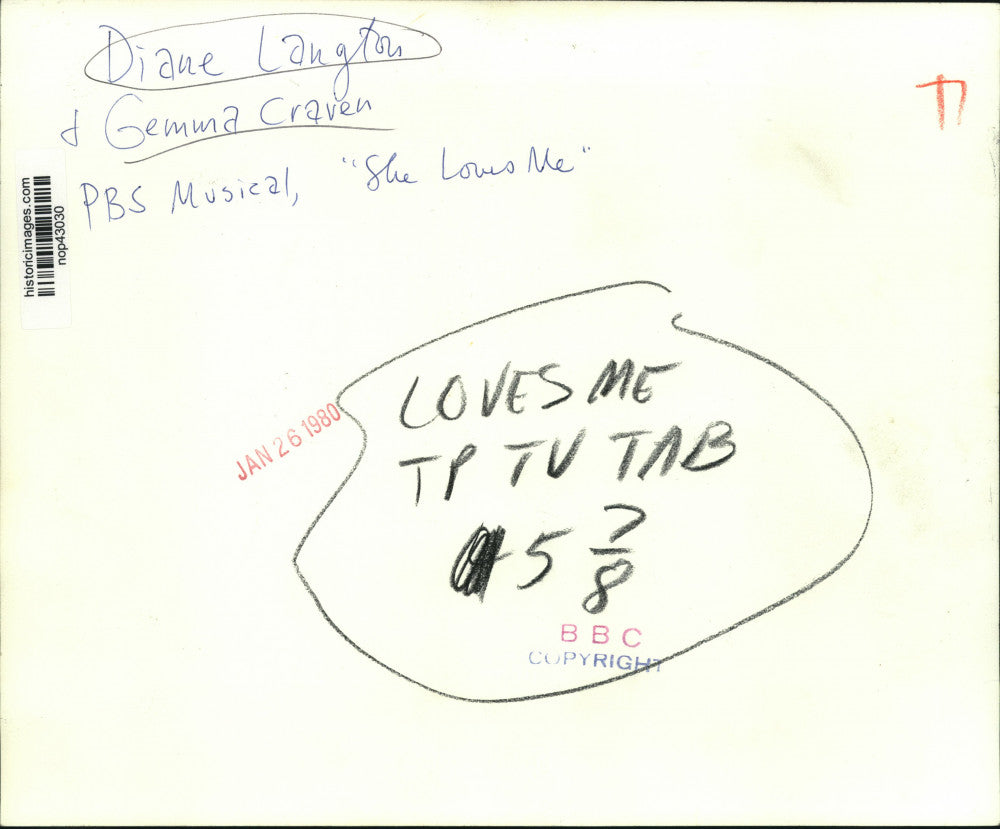 Diane Langton
& Gemma Craven
PBS Musical, "She Loves Me"
historicimages.com
nop43030
JAN 26 1980
LOVES ME
TP TV TAB
5 7/8
BBC
COPYRIGHT